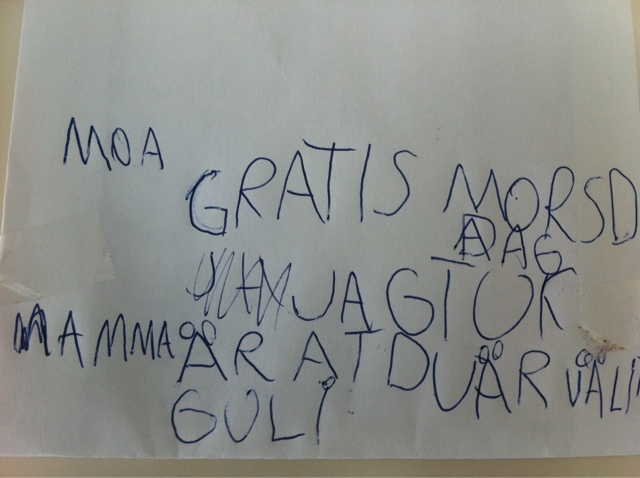 MOA
GRATIS MORSD
DAG
JAG TÜK
MAMMA ÄR AT DU ÄR VÄLI
GULI